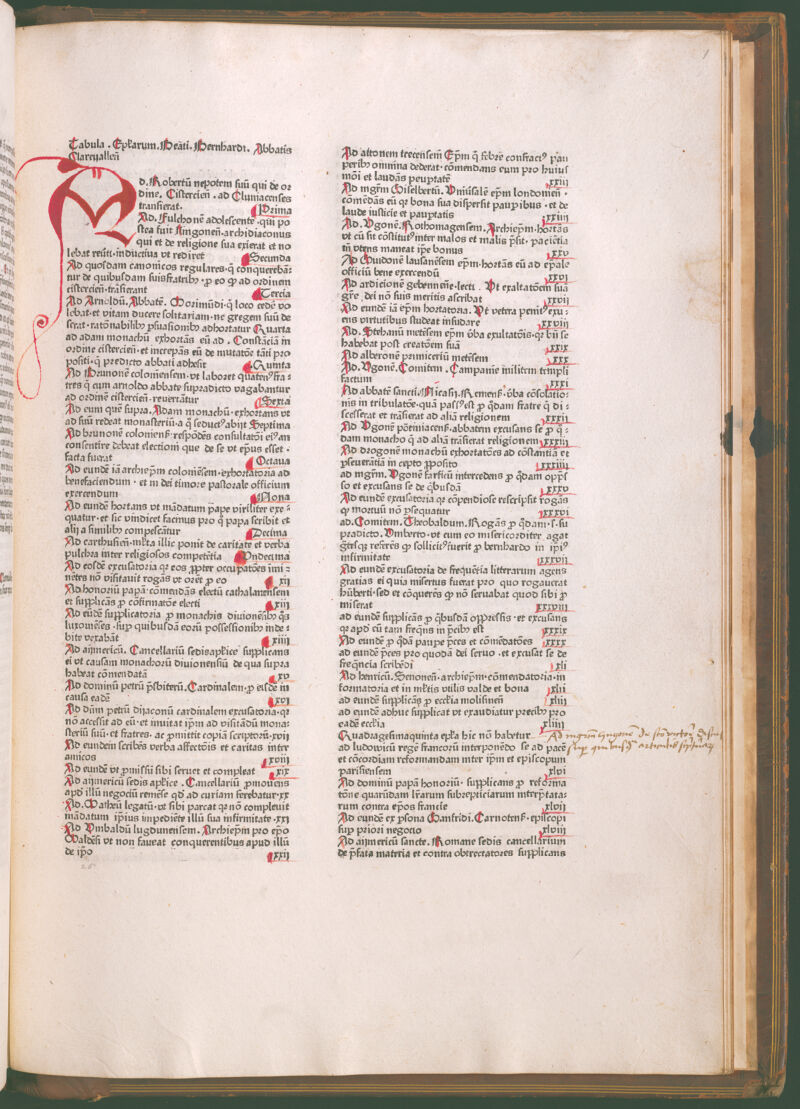 Tabula . Epl̄arum . Beāti . Bernhardi . Abbatis
Clareuallen̄
d. Robertū nepotem suū qui de or
dine. Cistercien̄ . ad Cluniacenses
transierat. Prima
Ad. Fulchonē adolescentē . qui po
stea fuit lingonen̄ . archidiaconus
qui et de religione sua exierat et no
lebat reūti . inductiua vt rediret Secunda
Ad quosdam canonicos regulares . q̄ conquerebān
tur de quibusdam suis fratribꝫ . ꝓ eo ꝙ ad ordinem
cisterciēn . trāsierant Tercia
Ad Arnoldū . Abbatē . Morimūdi . q̄ loco cedē vo
lebat . et vitam ducere solitariam . ne gregem suū de
serat . ratōnabilibꝫ ꝑsuasionibꝫ adhortatur Quarta
ad adam monachū exhortās eū ad . Constāciā in
ordine cistercien̄ . et increpās eū de mutatōe tāti pro
positi . q̄ predicto abbati adhesit Quinta
Ad Brunonē coloniensem . vt laboret quaten̄ꝰ fra-
tres q̄ cum arnoldo abbate supradicto vagabantur
ad ordinē cistercien̄ . reuertātur Sexta
Ad eum quē supra . Adam monachū . exhortans vt
ad suū redeat monasteriū . a q̄ seductꝰ abijt Septima
Ad brunonē coloniens̄ . respōdēs consultatōi eiꝰ . an
consentire debeat electioni que de se vt ep̄us esset .
facta fuerat Octaua
Ad eundē iā archiep̄m colonien̄sem . exhortatoria ad
benefaciendum . et in dei timore pastorale officium
exercendum Nona
Ad eundē hortans vt mādatum pape viriliter exe-
quatur . et sic vindicet facinus pro q̄ papa scribit et
alij a similibꝫ compescātur Decima
Ad carthusien̄ . ml̄ta illic ponit de caritate et verba
pulchra inter religiosos competētia Vndecima
Ad eosdē excusatoria qꝛ eos ꝓpter occupatōēs imi-
nētes nō visitauit rogās vt oret ꝓ eo xij
Ad honoriū papā . comēdās electū cathalanensem
et supplicās ꝓ cōfirmatōne electi xiij
Ad eūdē supplicatoria ꝓ monachis diuionēsibꝫ q̄s
luxouiēses . suꝑ quibusdā eorū possessionibꝫ inde-
bite vexabāt xiiij
Ad aijmericū . Cancellariū sedis apl̄ice supplicans
ei vt causam monachorū diuionensiū de qua supra
habeat cōmendatā xv
Ad dominū petrū p̄sbiterū . Cardinalem . ꝓ eisdē in
causa eadē xvi
Ad dūm petrū dijaconū cardinalem excusatoria . qꝛ
nō accessit ad eū . et inuitat ip̄m ad visitādū mona-
steriū suū . et fratres . ac ꝓmittit copiā scriptorū . xvij
Ad eundem scribēs verba affectōis et caritas inter
amicos xviij
Ad eundē vt ꝓmissū sibi seruet et compleat xix
Ad aijmericū sedis apl̄ice . Cancellariū ꝓmouens
apd̄ illū negociū remēse qd̄ ad curiam ferebatur . xx
Ad . Matheū legatū . vt sibi parcat qꝛ nō compleuit
mādatum ip̄ius impediēte illū sua infirmitate . xxi
Ad Vmbaldū lugdunensem . Archiep̄m pro ep̄o
Waldēsi vt non faueat conquerentibus apud illū
de ip̄o xxij
Ad attonem trecensem̄ Ep̄m q̄ febre confractꝰ pau
peribꝫ omnina dederat . cōmendans eum pro huius
mōi et laudās pauptatē xxiij
Ad mgr̄m Giselbertū . Vniūsalē ep̄m londonien̄ .
comēdās eū qꝛ bona sua dispersit pauꝑibus . et de
laude iusticie et pauꝑtatis xxiiij
Ad . Vgonē . Rothomagensem . Archiep̄m . hortās
vt cū sit cōstitutꝰ inter malos et malis p̄sit . paciētia
tn̄ vtens maneat ip̄e bonus xxv
Ad Guidonē lausanēsem ep̄m . hortās eū ad ep̄ale
officiū bene exercendū xxvi
Ad ardicionē gebennen̄e . lecti . Vt exaltatōem suā
gr̄e . dei nō suis meritis ascribat xxvij
Ad eundē iā ep̄m hortatoria . Vt vetera penitꝰ exu-
ens virtutibus studeat insudare xxviij
Ad . Stehanū metēsem ep̄m v̄ba exultatōis . qꝛ bn̄ se
habebat post creatōem suā xxix
Ad alberonē primiceriū metēsem xxx
Ad . Vgonē . Comitem . Campanie militem templi
factum xxxi
Ad abbatē sancti . Nicasij . Remens̄ . v̄ba cōsolatio-
nis in tribulatōe . quā passꝰ est ꝓ q̄dam fratre q̄ di-
scesserat et trāsierat ad aliā religionem xxxij
Ad Vgonē pōtiniacens̄ . abbatem excusans se ꝓ q̄-
dam monacho q̄ ad aliā trāsierat religionem xxxiij
Ad drogonē monachū exhortatōes ad cōstantiā et
ꝑseuerātiā in cepto ꝓposito xxxiiij
ad mgr̄m . Vgonē farsicū intercedens ꝓ q̄dam opp̄s
so et excusans se de q̄busdā xxxv
Ad eundē excusatoria qꝛ cōpendiose rescripsit rogās
q̄ mortuū nō ꝑsequatur xxxvi
ad . Comitem . Theobaldum . Rogās ꝓ q̄dam . s . su
pradicto . Vmberto . vt cum eo misericorditer agat
gr̄tesqꝫ referēs ꝙ sollicitꝰ fuerit ꝓ bernhardo in ip̄iꝰ
infirmitate xxxvij
Ad eundē excusatoria de frequētia litterarum agens
gratias ei quia misertus fuerat pro quo rogauerat
hūberti . sed et cōquerēs ꝙ nō seruabat quod sibi ꝓ
miserat xxxviij
ad eundē supplicās ꝓ q̄busdā oppressis . et excusans
qꝛ apd̄ eū tam freq̄ns in p̄cibꝫ est xxxix
Ad eundē ꝓ q̄dā paupe p̄ces et cōmēdatōes xxxx
ad eundē p̄ces pro quodā dei seruo . et excusat se de
freq̄ncia scribēdi xli
Ad henricū . Senonen̄ . archiep̄m . cōmendatoria . in
formatoria et in ml̄tis vtilis valde et bona xlij
ad eundē supplicās ꝓ ecclia molismēn̄ xliij
ad eundē adhuc supplicat vt exaudiatur precibꝫ pro
eadē ecclia xliiij
Quadragesimaquinta epl̄a hic nō habetur
ad ludouicū regē francorū interponēdo se ad pacē
et cōcordiam reformandam inter ip̄m et episcopum
parisiensem xlvi
Ad dominū papā honoriū . supplicans ꝓ reforma
tōne quarūdam lr̄arum subrepticiarum interp̄tata-
rum contra ep̄os francie xlvij
Ad eundē ex ꝑsona Gaufridi . Carnotens̄ . episcopi
suꝑ priori negotio xlviij
Ad aijmericū sancte . Romane sedis cancellarium
de p̄fata materia et contra obtrectatores supplicans